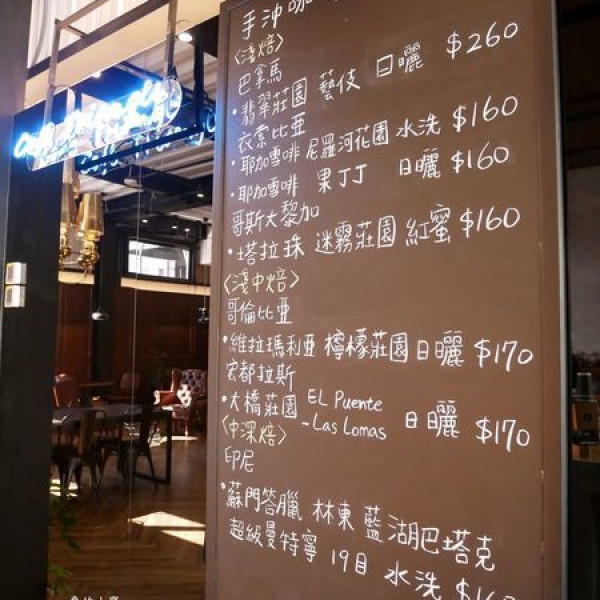 手沖咖
〈淺焙〉
巴拿馬
·翡翠莊園 藝伎 日曬 $260
衣索比亞
·耶加雪啡 尼羅河花園 水洗 $160
·耶加雪啡 果丁丁 日曬 $160
哥斯大黎加
·塔拉珠 迷霧莊園 紅蜜 $160
〈淺中焙〉
哥倫比亞
·維拉瑪利亞 檸檬莊園 日曬 $170
宏都拉斯
·大橋莊園 EL Puente
-Las Lomas 日曬 $170
〈中深焙〉
印尼
·蘇門答臘 林東 藍湖巴塔克
超級曼特寧 19目 水洗